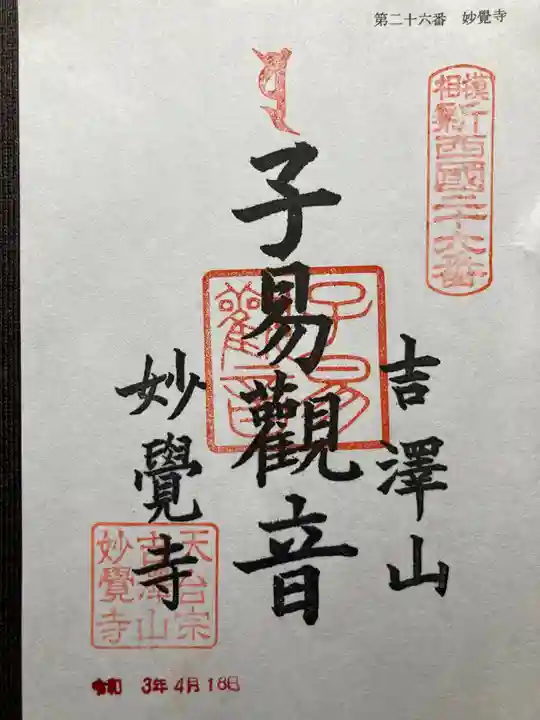 第二十六番　妙覺寺
相模
新西國二十六番
吉澤山
子易觀音
子易
觀音
妙覺寺
天台宗
吉澤山
妙覺寺
令和 3年4月18日